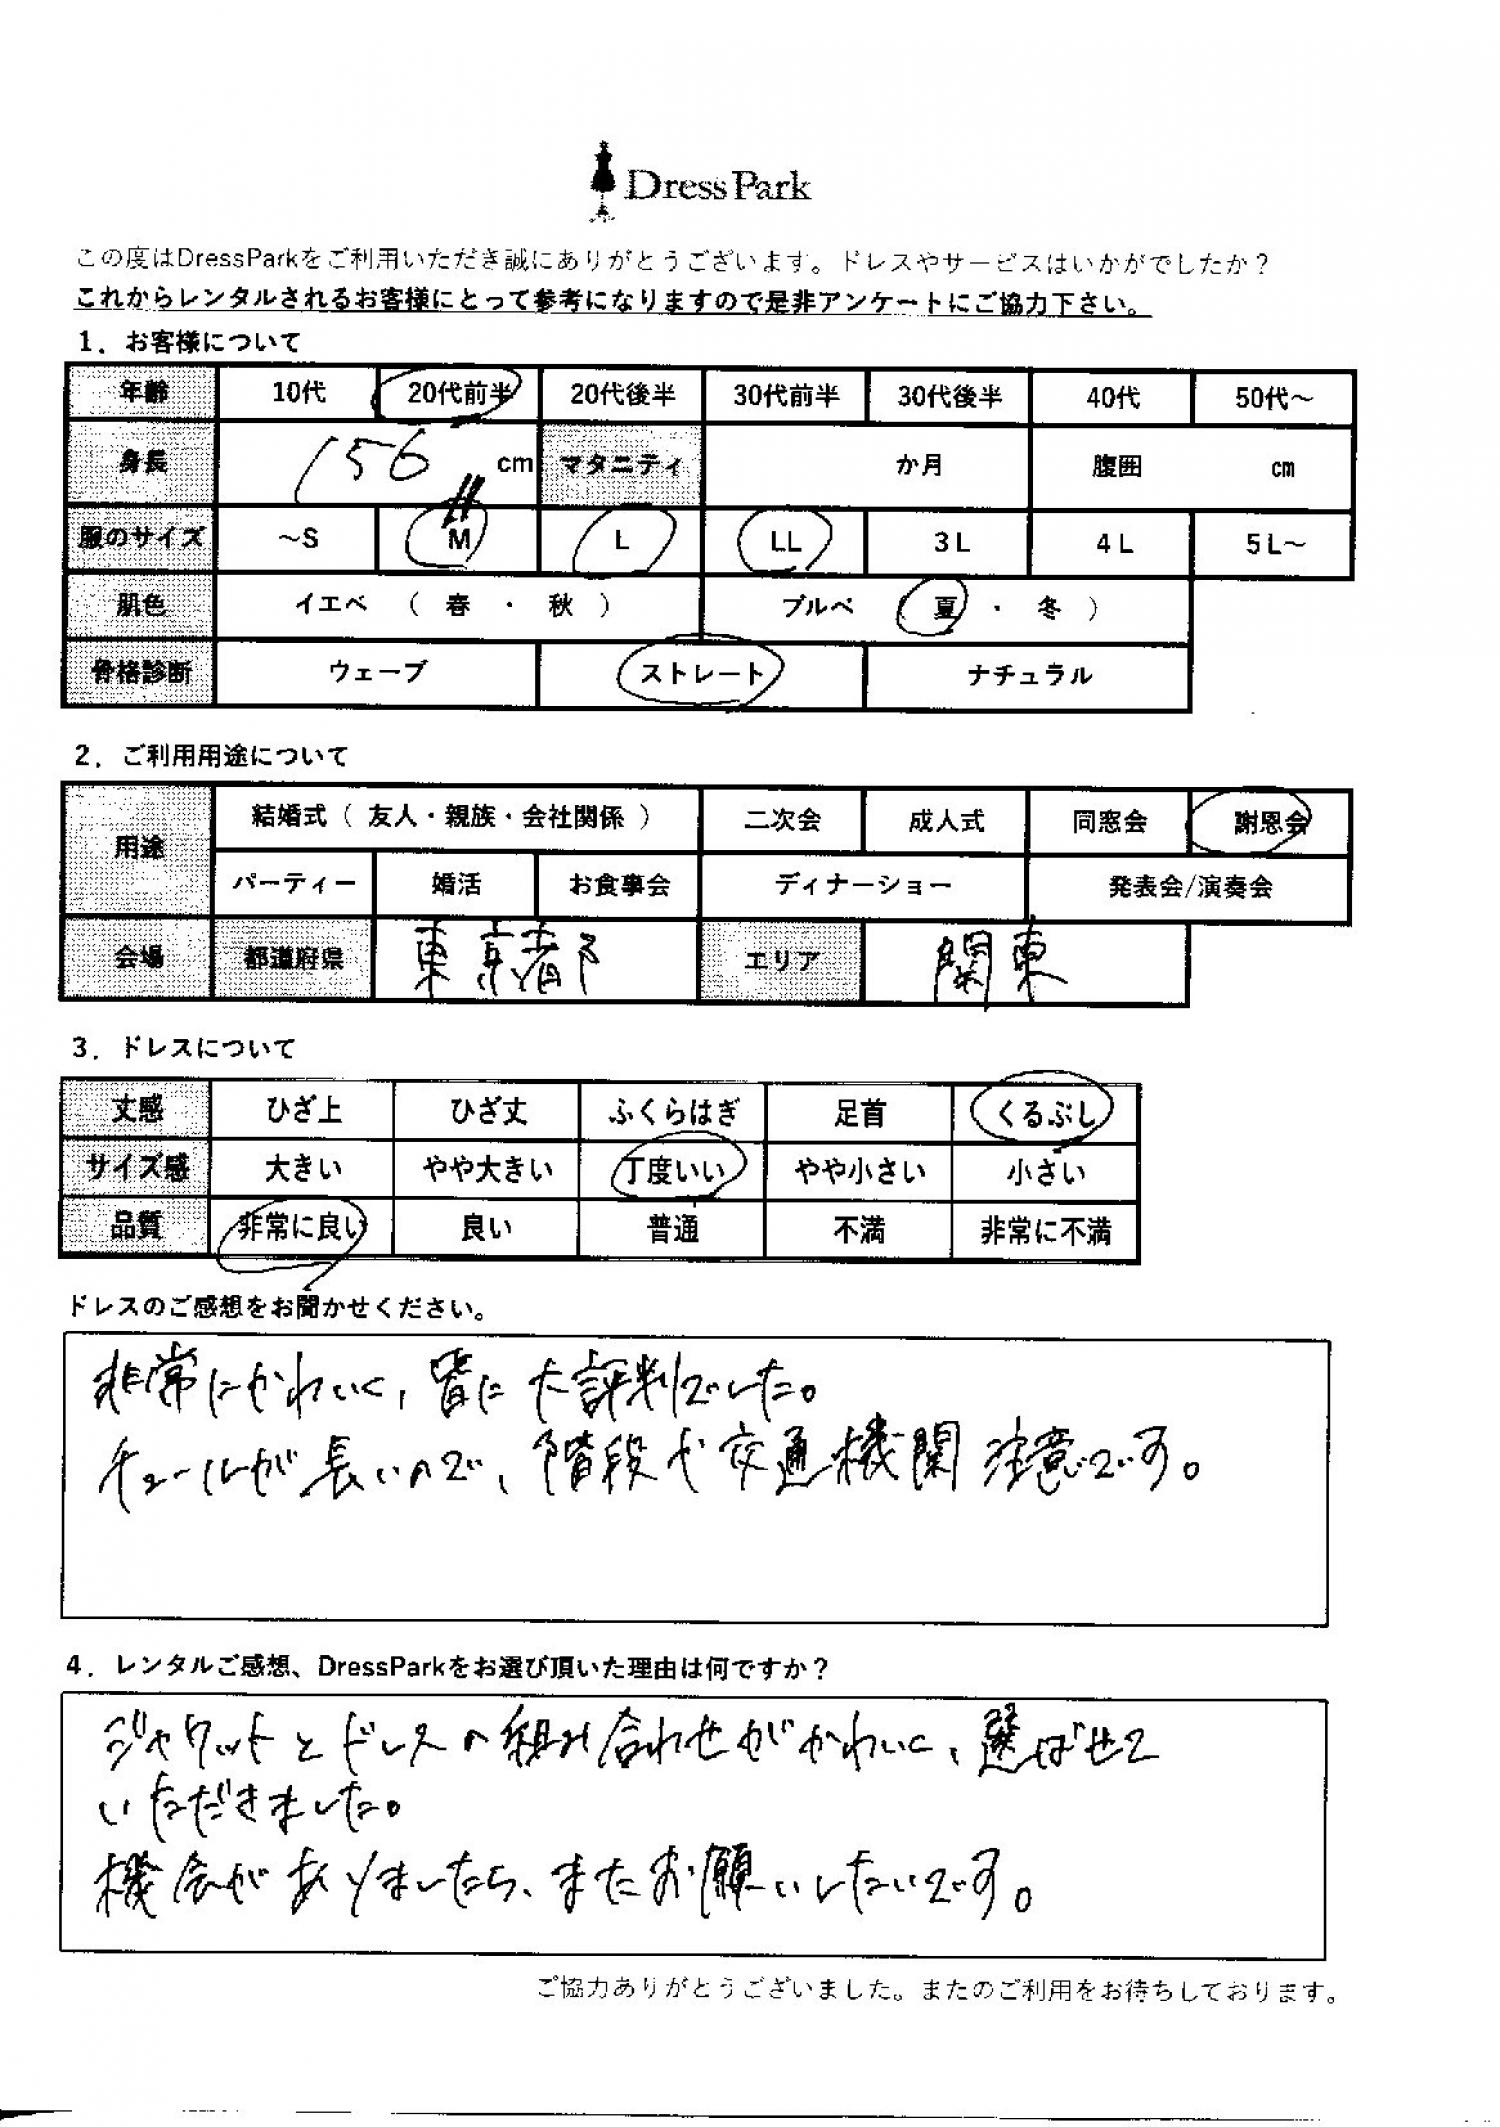 DressPark
この度はDressParkをご利用いただき誠にありがとうございます。ドレスやサービスはいかがでしたか？
これからレンタルされるお客様にとって参考になりますので是非アンケートにご協力下さい。
1．お客様について
年齢 10代 20代前半 20代後半 30代前半 30代後半 40代 50代～
身長 156 cm マタニティ か月 腹囲 cm
服のサイズ ～S M L LL 3L 4L 5L～
肌色 イエベ （ 春 ・ 秋 ） ブルベ （ 夏 ・ 冬 ）
骨格診断 ウェーブ ストレート ナチュラル
2．ご利用用途について
用途 結婚式（ 友人・親族・会社関係 ） 二次会 成人式 同窓会 謝恩会
パーティー 婚活 お食事会 ディナーショー 発表会/演奏会
会場 都道府県 東京都 エリア 関東
3．ドレスについて
丈感 ひざ上 ひざ丈 ふくらはぎ 足首 くるぶし
サイズ感 大きい やや大きい 丁度いい やや小さい 小さい
品質 非常に良い 良い 普通 不満 非常に不満
ドレスのご感想をお聞かせください。
非常にかわいく、皆に大評判でした。
チュールが長いので、階段や交通機関注意です。
4．レンタルご感想、DressParkをお選び頂いた理由は何ですか？
ジャケットとドレスの組み合わせがかわいく、選ばせて
いただきました。
機会がありましたら、またお願いしたいです。
ご協力ありがとうございました。またのご利用をお待ちしております。